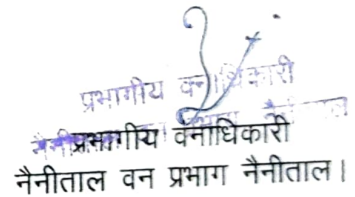 प्रभागीय वनाधिकारी
प्रभागीय वनाधिकारी
नैनीताल वन प्रभाग नैनीताल।